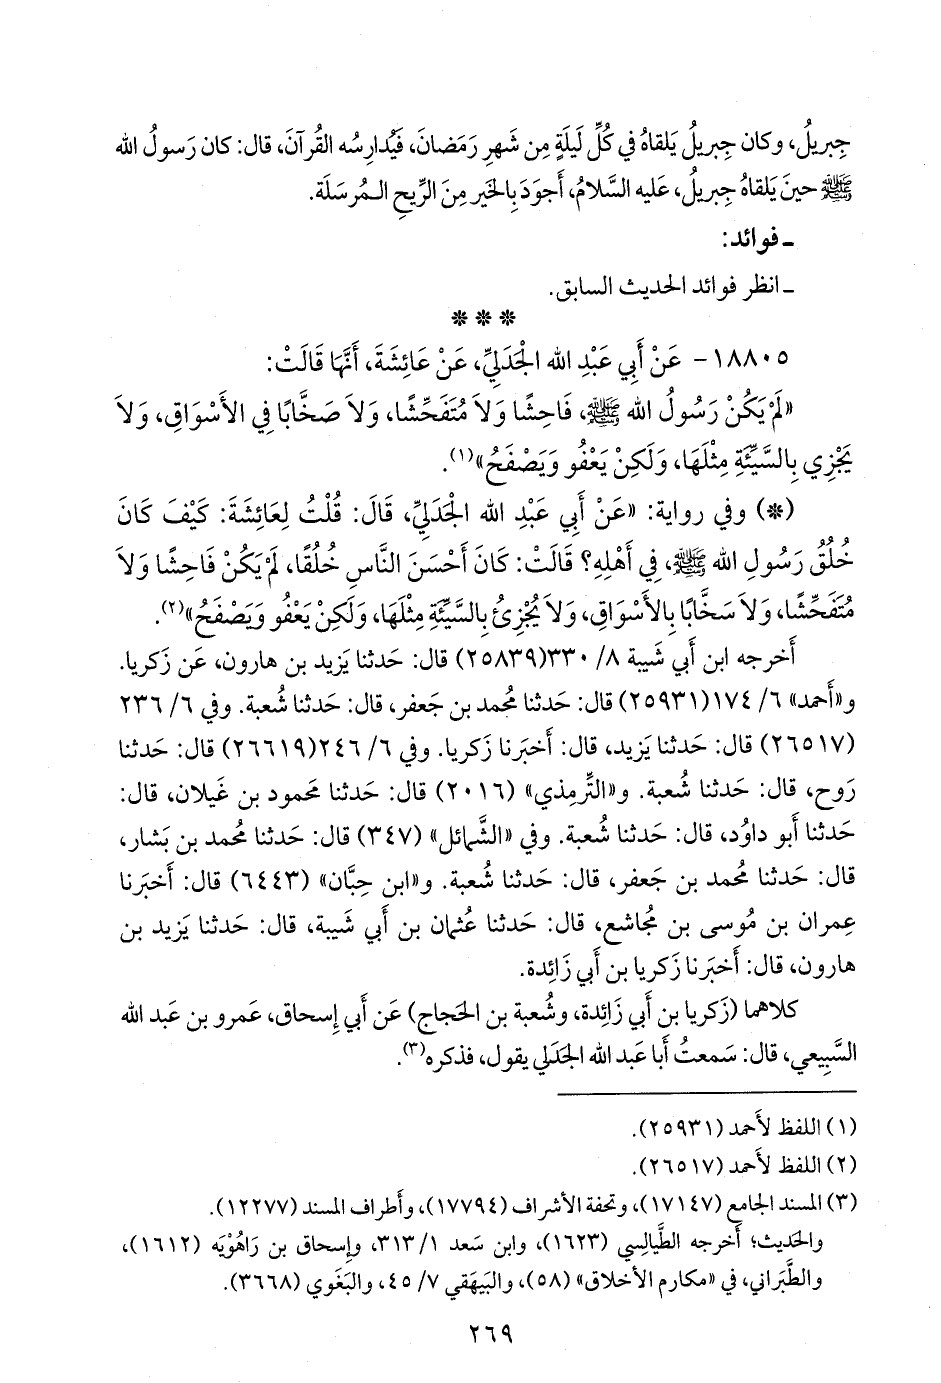 جِبريلُ، وكان جِبريلُ يَلقاهُ في كُلِّ لَيلَةٍ مِن شَهرِ رَمَضانَ، فَيُدارِسُه القُرآنَ، قال: كان رَسولُ الله
ﷺ حينَ يَلقاهُ جِبريلُ، عَليه السَّلامُ، أَجوَدَ بِالخَيرِ مِنَ الرِّيحِ الـمُرسَلَة.
ـ فوائد:
ـ انظر فوائد الحديث السابق.
* * *
١٨٨٠٥- عَنْ أَبِي عَبْدِ الله الْجَدَلِيِّ، عَنْ عَائِشَةَ، أَنَّهَا قَالَتْ:
«لَمْ يَكُنْ رَسُولُ الله ﷺ، فَاحِشًا وَلاَ مُتَفَحِّشًا، وَلاَ صَخَّابًا فِي الأَسْوَاقِ، وَلاَ
يَجْزِي بِالسَّيِّئَةِ مِثْلَهَا، وَلَكِنْ يَعْفُو وَيَصْفَحُ»(١).
(*) وفي رواية: «عَنْ أَبِي عَبْدِ الله الْجَدَلِيِّ، قَالَ: قُلْتُ لِعَائِشَةَ: كَيْفَ كَانَ
خُلُقُ رَسُولِ الله ﷺ، فِي أَهْلِهِ؟ قَالَتْ: كَانَ أَحْسَنَ النَّاسِ خُلُقًا، لَمْ يَكُنْ فَاحِشًا وَلاَ
مُتَفَحِّشًا، وَلاَ سَخَّابًا بِالأَسْوَاقِ، وَلاَ يُجْزِئُ بِالسَّيِّئَةِ مِثْلَهَا، وَلَكِنْ يَعْفُو وَيَصْفَحُ»(٢).
أَخرجه ابن أبي شَيبة ٨/ ٣٣٠(٢٥٨٣٩) قال: حَدثنا يَزيد بن هارون، عَن زَكريا.
و«أَحمد» ٦/ ١٧٤(٢٥٩٣١) قال: حَدثنا مُحمد بن جَعفر، قال: حَدثنا شُعبة. وفي ٦/ ٢٣٦
(٢٦٥١٧) قال: حَدثنا يَزيد، قال: أَخبَرنا زَكريا. وفي ٦/ ٢٤٦(٢٦٦١٩) قال: حَدثنا
رَوح، قال: حَدثنا شُعبة. و«التِّرمِذي» (٢٠١٦) قال: حَدثنا مَحمود بن غَيلان، قال:
حَدثنا أَبو داوُد، قال: حَدثنا شُعبة. وفي «الشَّمائل» (٣٤٧) قال: حَدثنا مُحمد بن بَشار،
قال: حَدثنا مُحمد بن جَعفر، قال: حَدثنا شُعبة. و«ابن حِبَّان» (٦٤٤٣) قال: أَخبَرنا
عِمران بن مُوسى بن مُجاشع، قال: حَدثنا عُثمان بن أَبي شَيبة، قال: حَدثنا يَزيد بن
هارون، قال: أَخبَرنا زَكريا بن أَبي زَائِدة.
كلاهما (زَكريا بن أَبي زَائِدة، وشُعبة بن الحَجاج) عَن أَبي إِسحاق، عَمرو بن عَبد الله
السَّبِيعي، قال: سَمعتُ أَبا عَبد الله الجَدَلي يقول، فذكره(٣).
(١) اللفظ لأَحمد (٢٥٩٣١).
(٢) اللفظ لأَحمد (٢٦٥١٧).
(٣) المسند الجامع (١٧١٤٧)، وتحفة الأشراف (١٧٧٩٤)، وأَطراف المسند (١٢٢٧٧).
والحَديث؛ أَخرجه الطَّيالِسي (١٦٢٣)، وابن سَعد ١/ ٣١٣، وإِسحاق بن رَاهُوْيَه (١٦١٢)،
والطَّبَراني، في «مكارم الأخلاق» (٥٨)، والبَيهَقي ٧/ ٤٥، والبَغَوي (٣٦٦٨).
٢٦٩